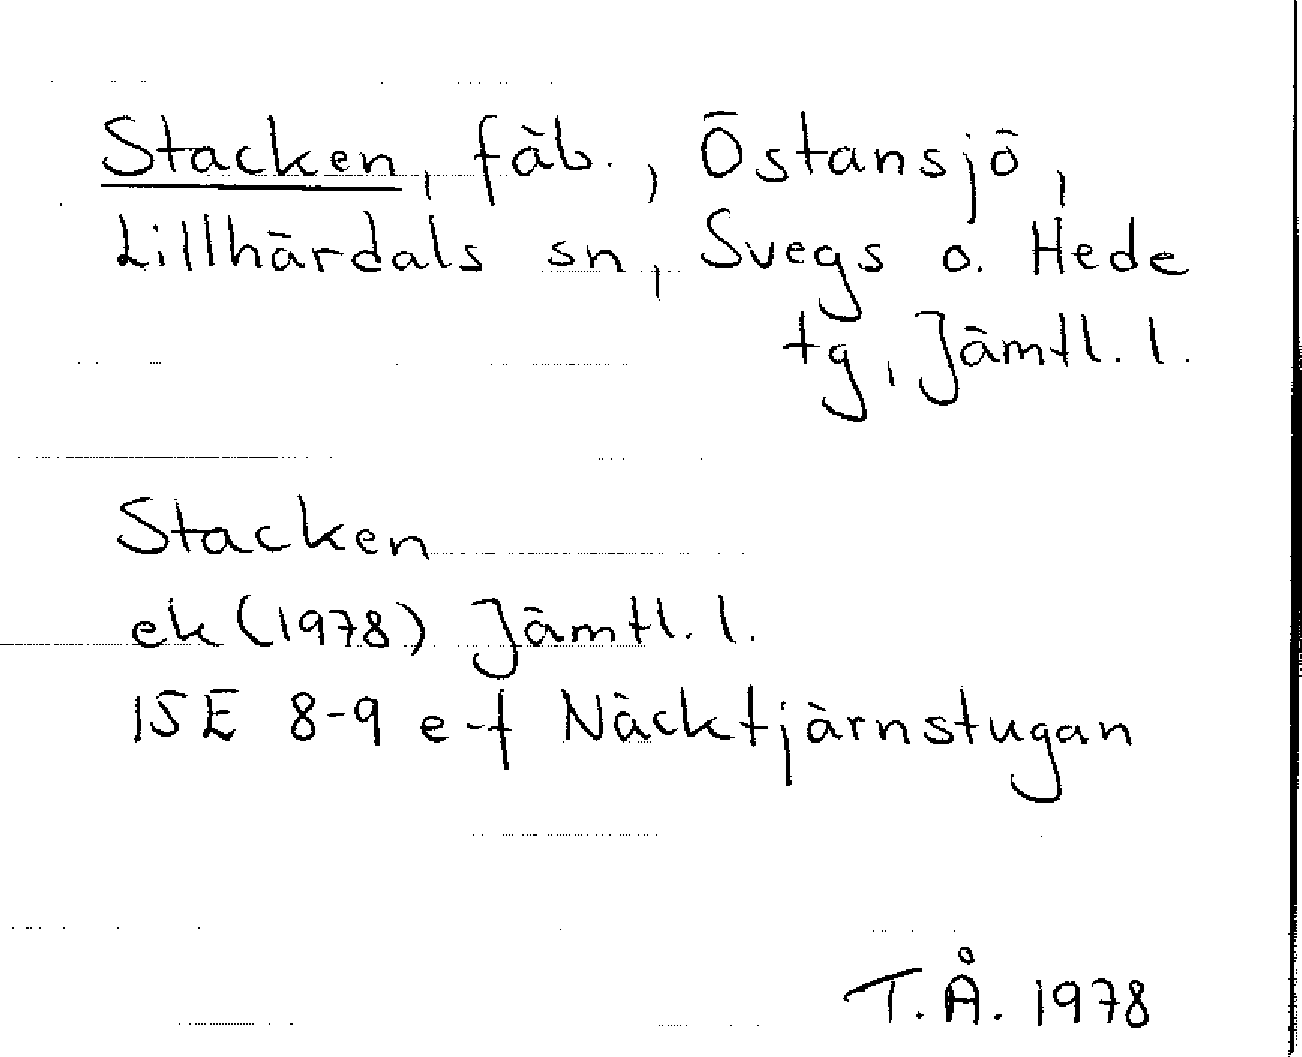 Stacken, fäb., Östansjö,
Lillhärdals sn, Svegs o. Hede
tg, Jämtl. l.
Stacken
ek (1978) Jämtl. l.
15E 8-9 e-f Näcktjärnstugan
T.Å. 1978